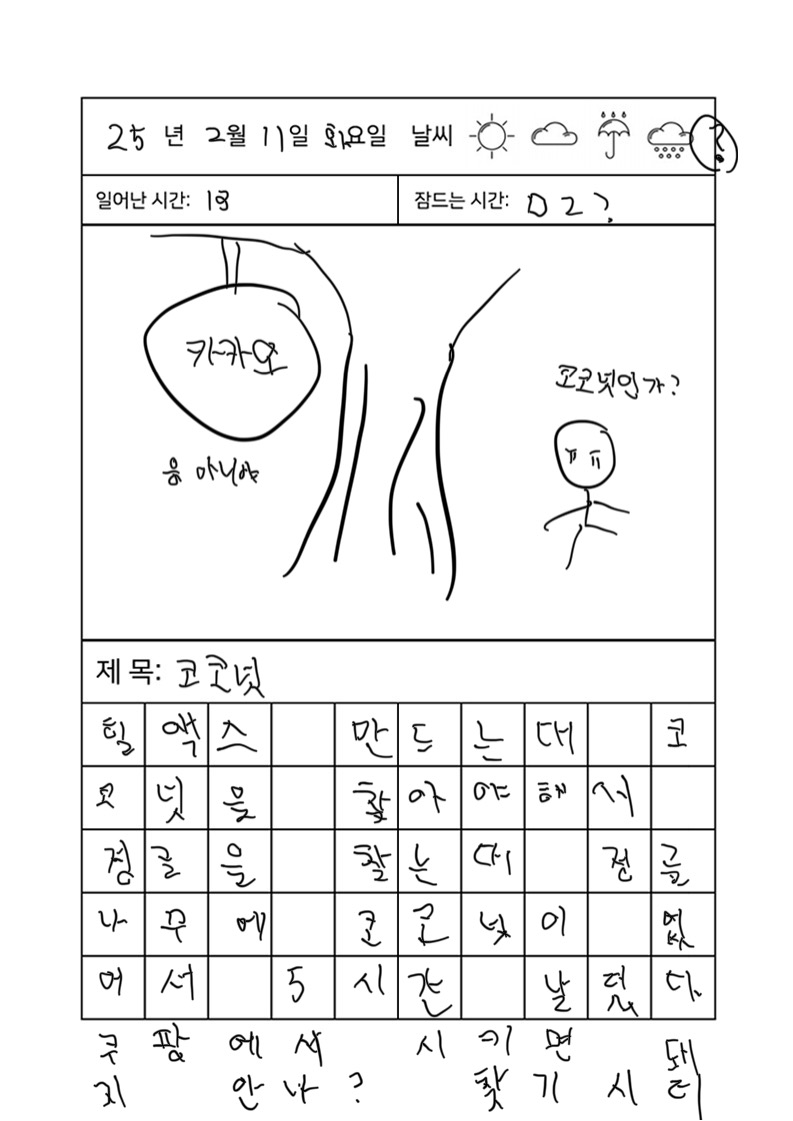 25년 2월 11일 화요일 날씨 ?
일어난 시간: 18 잠드는 시간: D 2 ?
카카오
코코넛인가?
응 아니야
제 목: 코코넛
틸액스 만드는대 코
코넛을 찰아야해서
정글을 찰는데 전글
나무에 코코넛이 없
어서 5시간 날렸다
쿠팡에서 시키면 돼
지 안나? 찾기 시